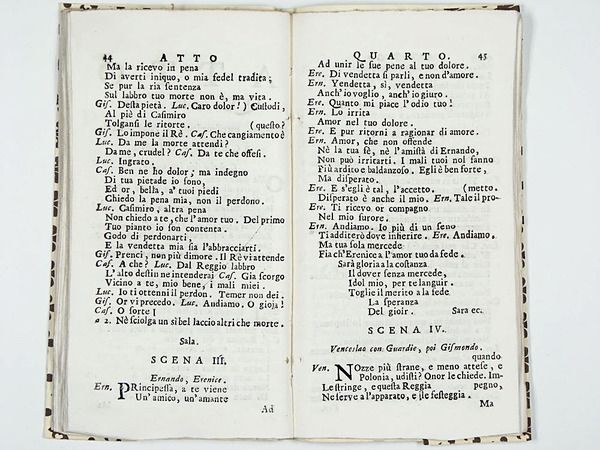 44 ATTO
Ma la ricevo in pena
Di averti iniquo, o mia fedel tradita;
Se pur la ria sentenza
Sul labbro tuo morte non è, ma vita.
Gis. Desta pietà. Luc. Caro dolor!) Custodi,
Al piè di Casimiro
Tolgansi le ritorte. (questo?
Gis. Lo impone il Rè. Cas. Che cangiamento è
Luc. Da me la morte attendi?
Da me, crudel? Cas. Da te che offesi.
Luc. Ingrato.
Cas. Ben ne ho dolor; ma indegno
Di tua pietade io sono,
Ed or, bella, a' tuoi piedi
Chiedo la pena mia, non il perdono.
Luc. Casimiro, altra pena
Non chiedo a te, che l'amor tuo. Del primo
Tuo pianto io son contenta.
Godo di perdonarti,
E la vendetta mia sia l'abbracciarti.
Gis. Prenci, non più dimore. Il Rè vi attende
Cas. A che? Luc. Dal Reggio labbro
L'alto destin ne intenderai Cas. Gia scorgo
Vicino a te, mio bene, i mali miei.
Luc. Io ti ottenni il perdon. Temer non dei.
Gis. Or vi precedo. Luc. Andiamo. O gioja!
Cas. O sorte!
a 2. Nè sciolga un sì bel laccio altri che morte.
Sala.
SCENA III.
Ernando, Erenice.
Ern. PRincipessa, a te viene
Un' amico, un'amante
Ad
QUARTO. 45
Ad unir le sue pene al tuo dolore.
Ere. Di vendetta si parli, e non d'amore.
Ern. Vendetta, sì, vendetta
Anch'io voglio, anch'io giuro.
Ere. Quanto mi piace l'odio tuo!
Ern. Lo irrita
Amor nel tuo dolore.
Ere. E pur ritorni a ragionar di amore.
Ern. Amor, che non offende
Nè la tua fè, nè l'amistà di Ernando,
Non può irritarti. I mali tuoi nol fanno
Più ardito e baldanzoso. Egli è ben forte,
Ma disperato.
Ere. E s'egli è tal, l'accetto. (metto.
Disperato è anche il mio. Ern. Tale il pro-
Ere. Ti ricevo or compagno
Nel mio furore.
Ern. Andiamo. Io più di un seno
Ti additerò dove inferire. Ere. Andiamo.
Ma tua sola mercede
Fia ch'Erenice l'amor tuo da fede.
Sarà gloria a la costanza
Il dover senza mercede,
Idol mio, per te languir.
Toglie il merito a la fede
La speranza
Del gioir. Sara ec.
SCENA IV.
Venceslao con Guardie, poi Gismondo.
quando
Ven. NOzze più strane, e meno attese, e
Polonia, udisti? Onor le chiede. Im-
Le stringe, e questa Reggia pegno,
Ne serve al'apparato, e le festeggia.
Ma